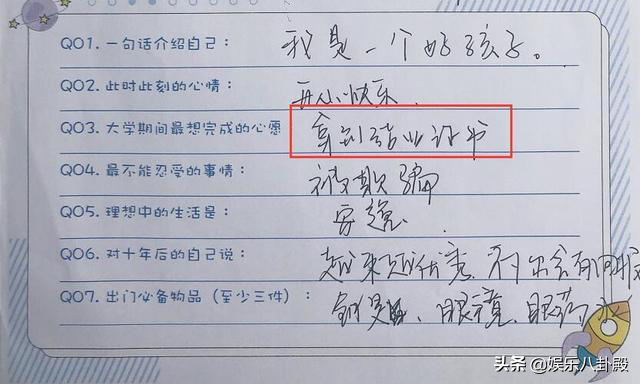 Q01. 一句话介绍自己： 我是一个好孩子。
Q02. 此时此刻的心情： 开心快乐.
Q03. 大学期间最想完成的心愿 拿到结业证书
Q04. 最不能忍受的事情： 被欺骗
Q05. 理想中的生活是： 安逸.
Q06. 对十年后的自己说： 越来越 付出会有回报
Q07. 出门必备物品（至少三件）： 眼镜、眼药水
头条 @娱乐八卦殿